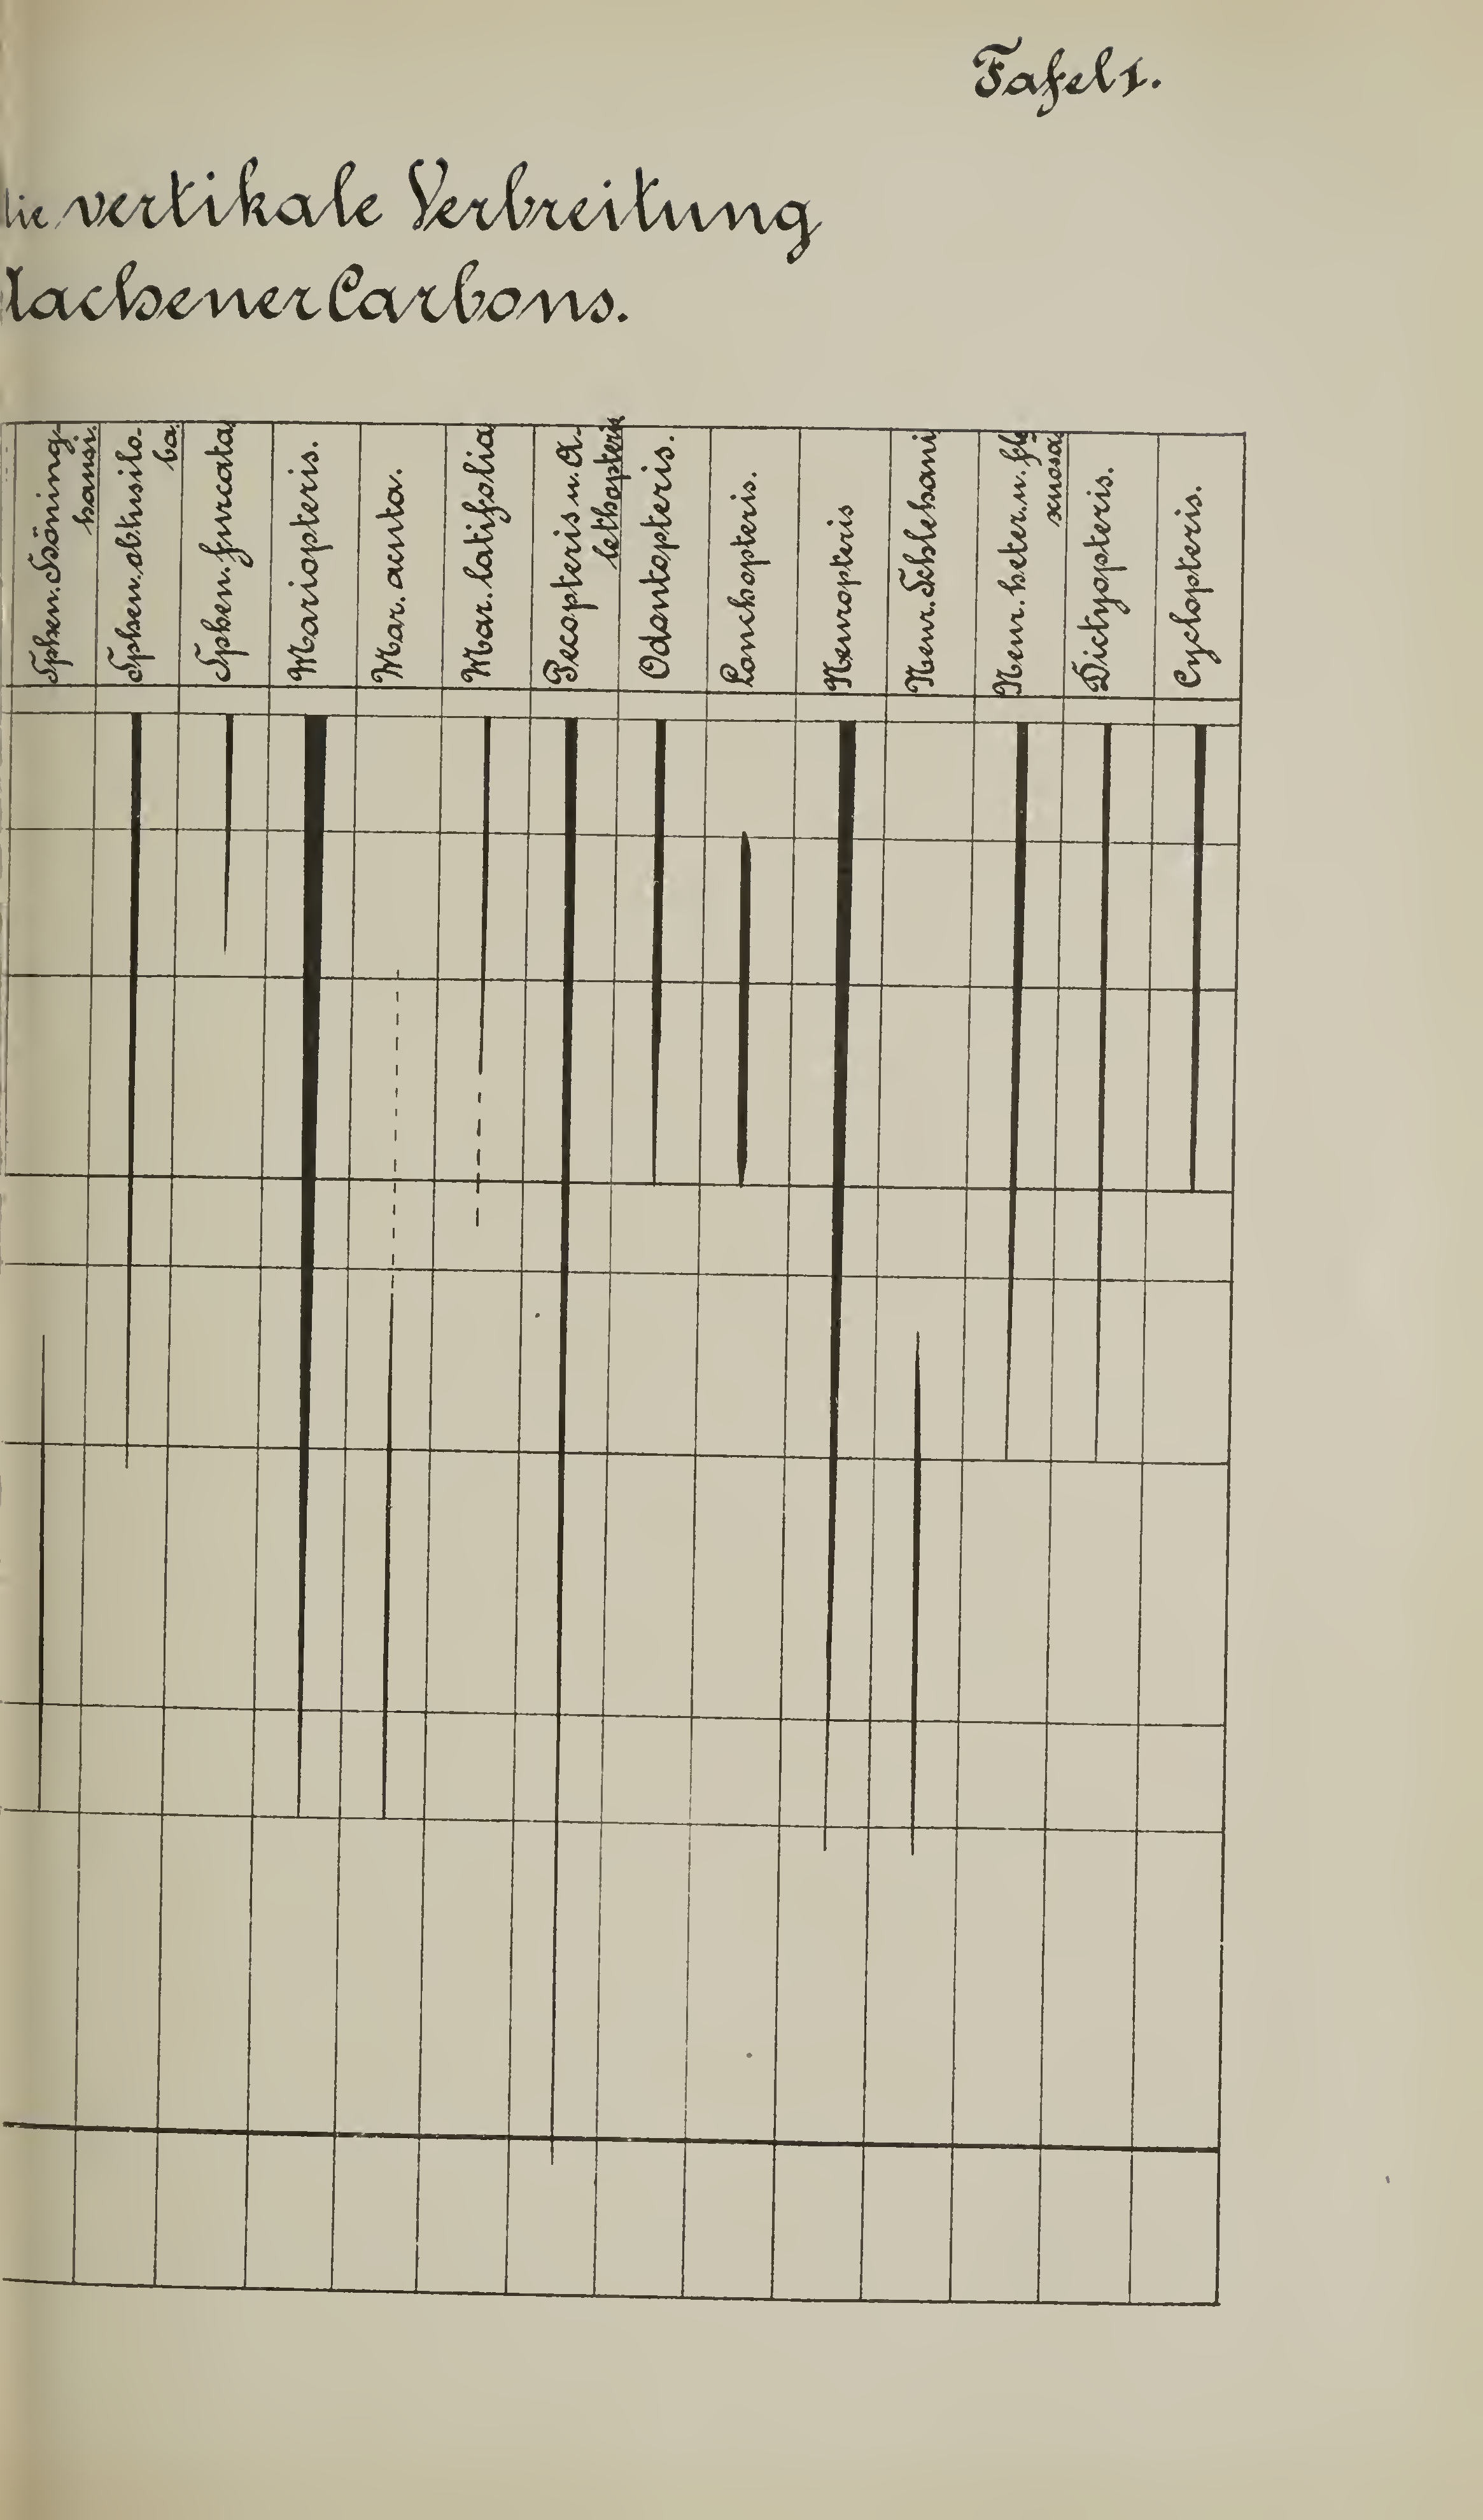 Tafel 1.
die vertikale Verbreitung
Aachener Carbons.
Sphen. Höning-
hausi.
Sphen. obtusilo-
ba.
Sphen. furcata
Mariopteris.
Mar. acuta.
Mar. latifolia
Pecopteris u. A-
lethopteris
Odontopteris.
Lonchopteris.
Neuropteris
Neur. Schlehani
Neur. heter. u. fle
xuosa
Dictyopteris.
Cyclopteris.